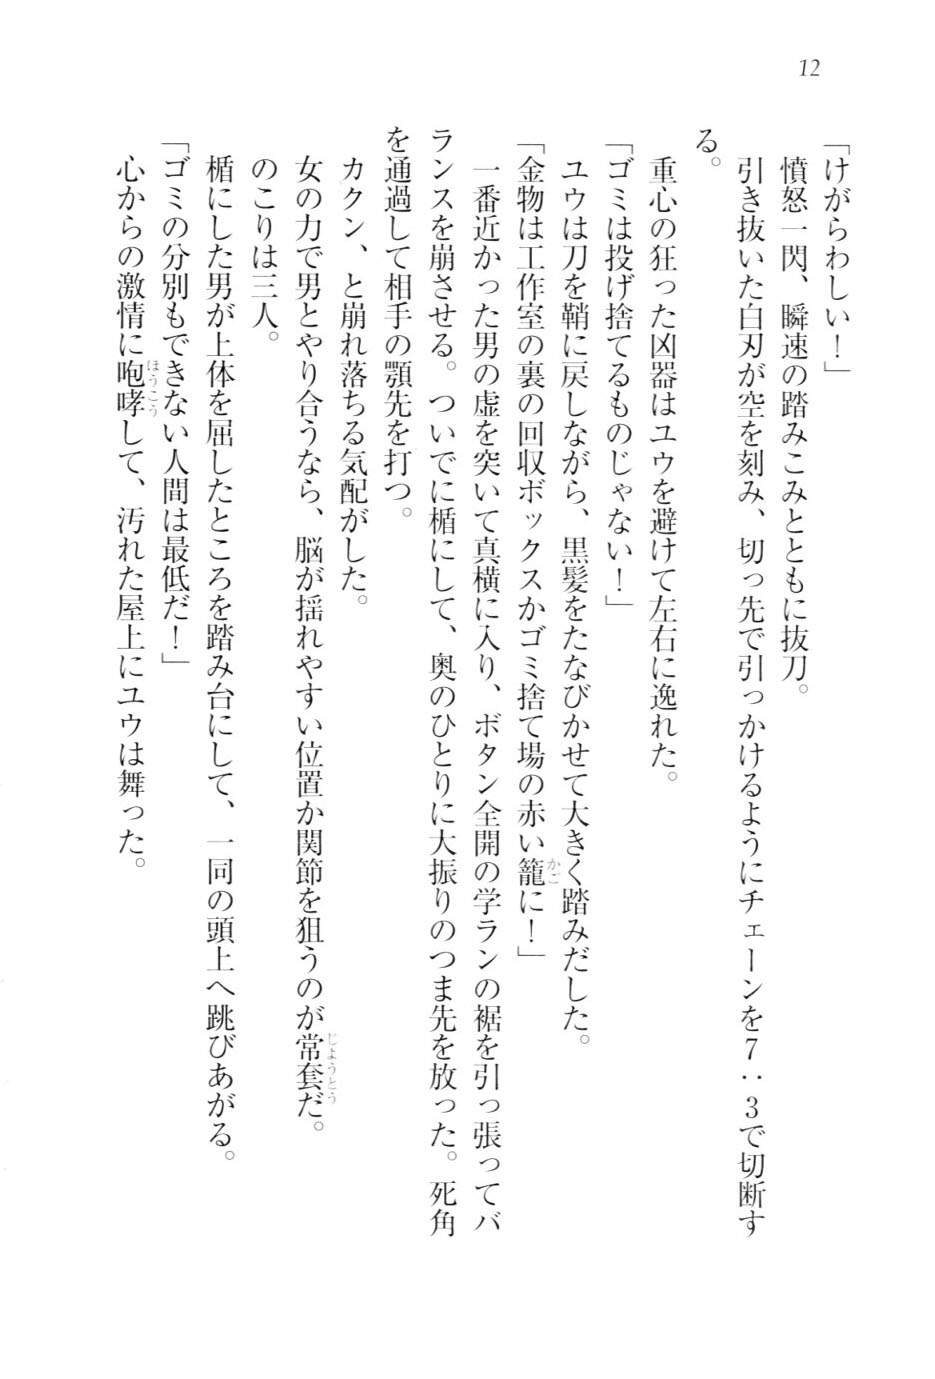 12
「けがらわしい！」
憤怒一閃、瞬速の踏みこみとともに抜刀。
引き抜いた白刃が空を刻み、切っ先で引っかけるようにチェーンを7：3で切断す
る。
重心の狂った凶器はユウを避けて左右に逸れた。
「ゴミは投げ捨てるものじゃない！」
ユウは刀を鞘に戻しながら、黒髪をたなびかせて大きく踏みだした。
「金物は工作室の裏の回収ボックスかゴミ捨て場の赤い籠に！」
かご
一番近かった男の虚を突いて真横に入り、ボタン全開の学ランの裾を引っ張ってバ
ランスを崩させる。ついでに楯にして、奥のひとりに大振りのつま先を放った。死角
を通過して相手の顎先を打つ。
カクン、と崩れ落ちる気配がした。
女の力で男とやり合うなら、脳が揺れやすい位置か関節を狙うのが常套だ。
じょうとう
のこりは三人。
楯にした男が上体を屈したところを踏み台にして、一同の頭上へ跳びあがる。
「ゴミの分別もできない人間は最低だ！」
心からの激情に咆哮して、汚れた屋上にユウは舞った。
ほうこう